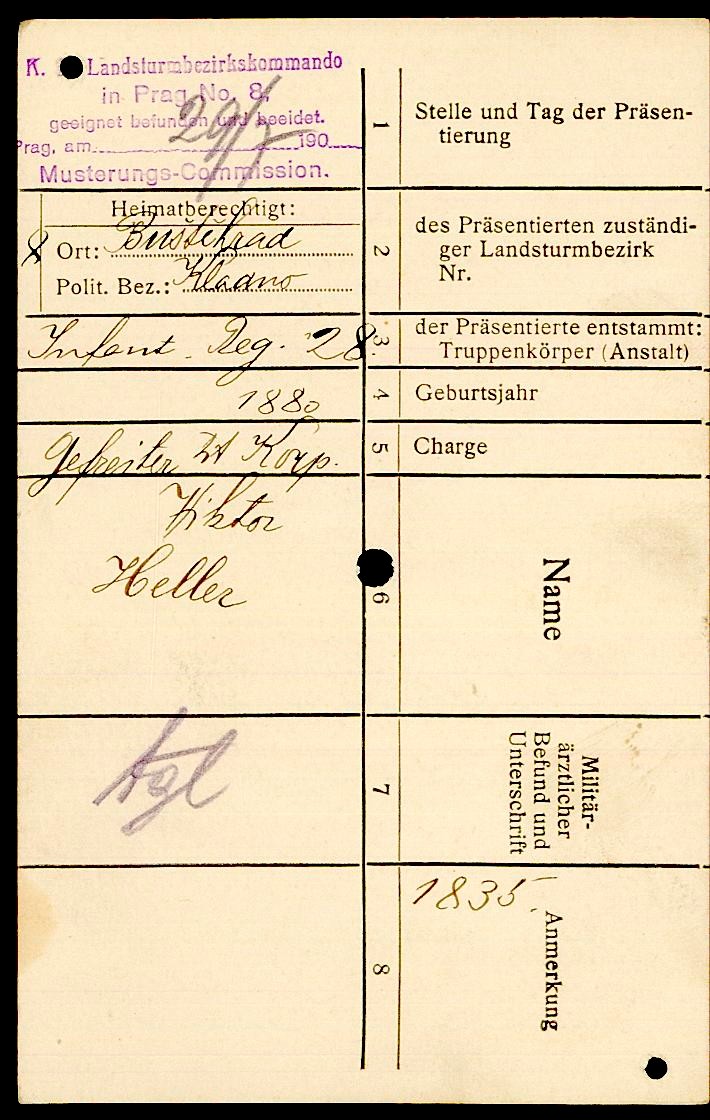 K. Landsturmbezirkskommando
in Prag No. 8,
geeignet befunden und beeidet.
Prag, am 190
29/7
Musterungs-Commission.
1
Stelle und Tag der Präsen-
tierung
Heimatberechtigt:
Ort: Buštěhrad
Polit. Bez.: Kladno
2
des Präsentierten zuständi-
ger Landsturmbezirk
Nr.
Infant. Reg. 28.
3
der Präsentierte entstammt:
Truppenkörper (Anstalt)
1880
4
Geburtsjahr
Gefreiter Korp.
5
Charge
Viktor
Heller
6
Name
tgl
7
Militär-
ärztlicher
Befund und
Unterschrift
1835.
8
Anmerkung